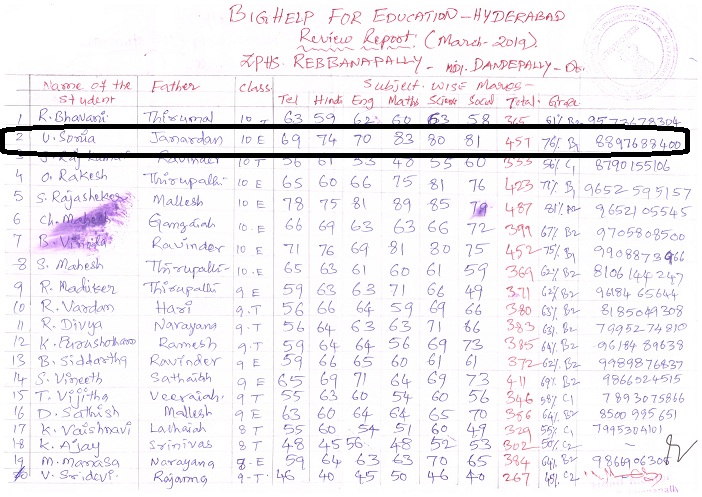 BIGHELP FOR EDUCATION - HYDERABAD
Review Report (March-2019)
ZPHS. REBBANAPALLY - Mdl. DANDEPALLY -
Subject wise Marks -
Name of the Student Father class Tel Hindi Eng Maths Science Social Total Grade
1 R. Bhavani Thirumal 10 T 63 59 62 60 63 58 365 61% B2 9573678304
2 V. Sonia Janardan 10 E 69 74 70 83 80 81 457 76% B1 8897688400
3 S. Raj kumar Ravinder 10 T 56 61 53 48 55 60 333 56% C1 8790155106
4 O. Rakesh Thirupathi 10 E 65 60 66 75 81 76 423 71% B1 9652595157
5 S. Rajasheker Mallesh 10 E 78 75 81 89 85 79 487 81% A2 9652105545
6 Ch. Mahesh Gangaiah 10 E 66 69 63 63 66 72 399 67% B2 9705808500
7 B. Ravinder 10 E 71 76 69 81 80 75 452 75% B1
8 S. Mahesh Thirupathi 10 E 65 63 61 60 61 59 369 62% B2 8106144247
9 R. Thirupathi 9 E 59 63 63 71 66 49 371 62% B2 9618465644
10 R. Vardan Hari 9 T 56 66 64 59 69 66 380 63% B2 8185049308
11 R. Divya Narayana 9 T 56 64 63 63 71 86 383 63% B2 7995274810
12 K. Purushotham Ramesh 9 T 59 64 64 56 69 73 385 64% B2 9618489638
13 B. Siddartha Ravinder 9 E 59 66 65 60 61 61 372 62% B2 9989876837
14 S. Vineeth Sathaiah 9 E 65 69 71 64 69 73 411 69% B2 9866024515
15 T. Vijitha Veeraiah 9 T 55 63 60 54 60 56 346 58% C1 7893075866
16 D. Sathish Mallesh 9 E 63 60 64 64 65 70 386 64% B2 8500995651
17 K. Vaishnavi Lachaiah 8 T 55 60 54 51 60 49 329 55% C1 7995304101
18 K. Ajay Srinivas 8 T 48 45 56 48 52 53 302 50% C2 -
19 M. Manasa Narayana 8 E 59 64 63 63 70 65 384 64% B2 9866906308
20 V. Sridevi Rajanna 9 T 46 40 45 50 46 40 267 45% C2